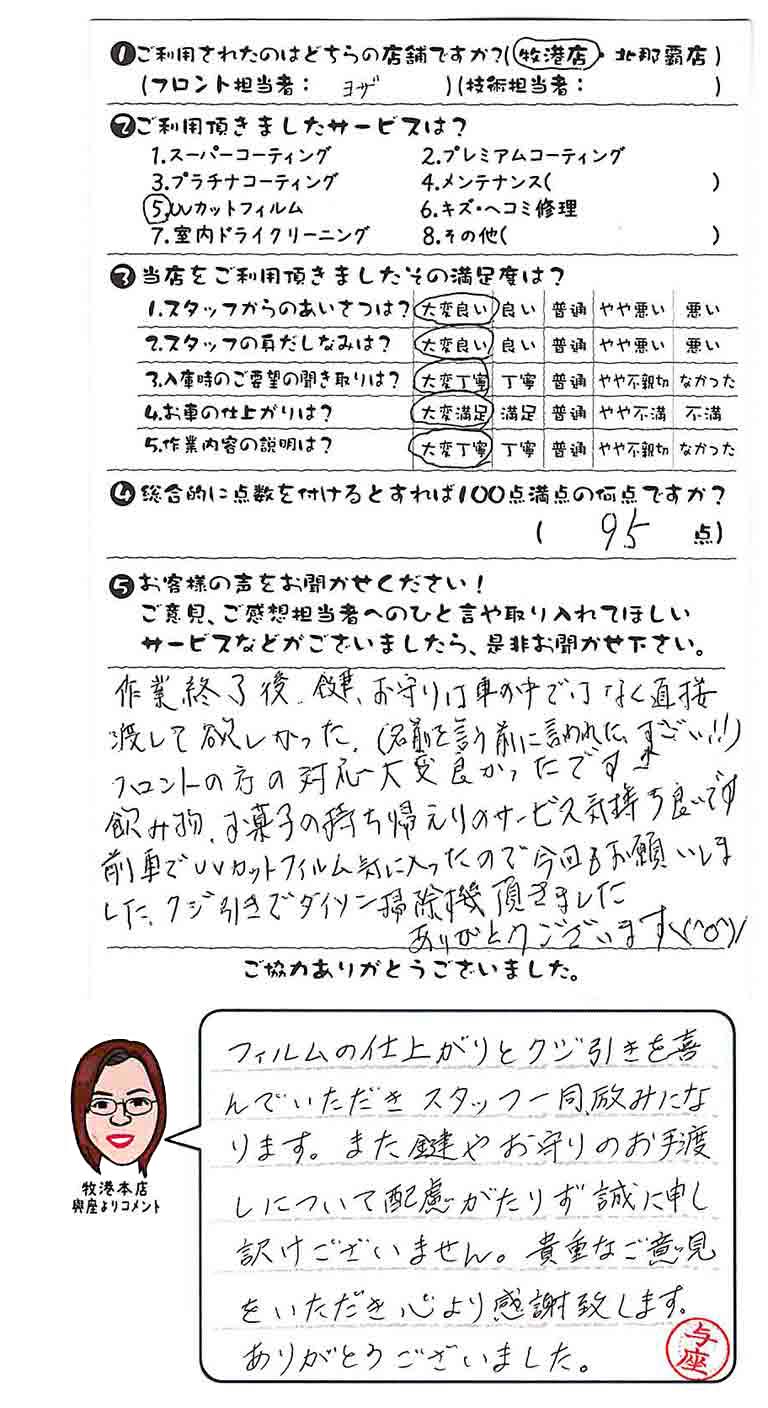 ❶ご利用されたのはどちらの店舗ですか?(牧港店・北那覇店)
(フロント担当者: ヨザ )(技術担当者: )
❷ご利用頂きましたサービスは?
1.スーパーコーティング 2.プレミアムコーティング
3.プラチナコーティング 4.メンテナンス( )
5.UVカットフィルム 6.キズ・ヘコミ修理
7.室内ドライクリーニング 8.その他( )
❸当店をご利用頂きましたその満足度は?
1.スタッフからのあいさつは? 大変良い 良い 普通 やや悪い 悪い
2.スタッフの身だしなみは? 大変良い 良い 普通 やや悪い 悪い
3.入庫時のご要望の聞き取りは? 大変丁寧 丁寧 普通 やや不親切 なかった
4.お車の仕上がりは? 大変満足 満足 普通 やや不満 不満
5.作業内容の説明は? 大変丁寧 丁寧 普通 やや不親切 なかった
❹総合的に点数を付けるとすれば100点満点の何点ですか?
( 95 点)
❺お客様の声をお聞かせください!
ご意見、ご感想担当者へのひと言や取り入れてほしい
サービスなどがございましたら、是非お聞かせ下さい。
作業終了後、鍵、お守りは車の中ではなく直接
渡して欲しかった。(名前を言う前に言われた、すごい!!)
フロントの方の対応大変良かったです
飲み物、お菓子の持ち帰えりのサービス気持ち良いです
前車でUVカットフィルム気に入ったので今回もお願いしま
した、クジ引きでダイソン掃除機頂きました
ありがとうございます\(^o^)/
ご協力ありがとうございました。
フィルムの仕上がりとクジ引きを喜
んでいただきスタッフ一同、励みにな
ります。また鍵やお守りのお手渡
しについて配慮がたりず誠に申し
訳けございません。貴重なご意見
をいただき心より感謝致します。
ありがとうございました。
与座
牧港本店
與座よりコメント